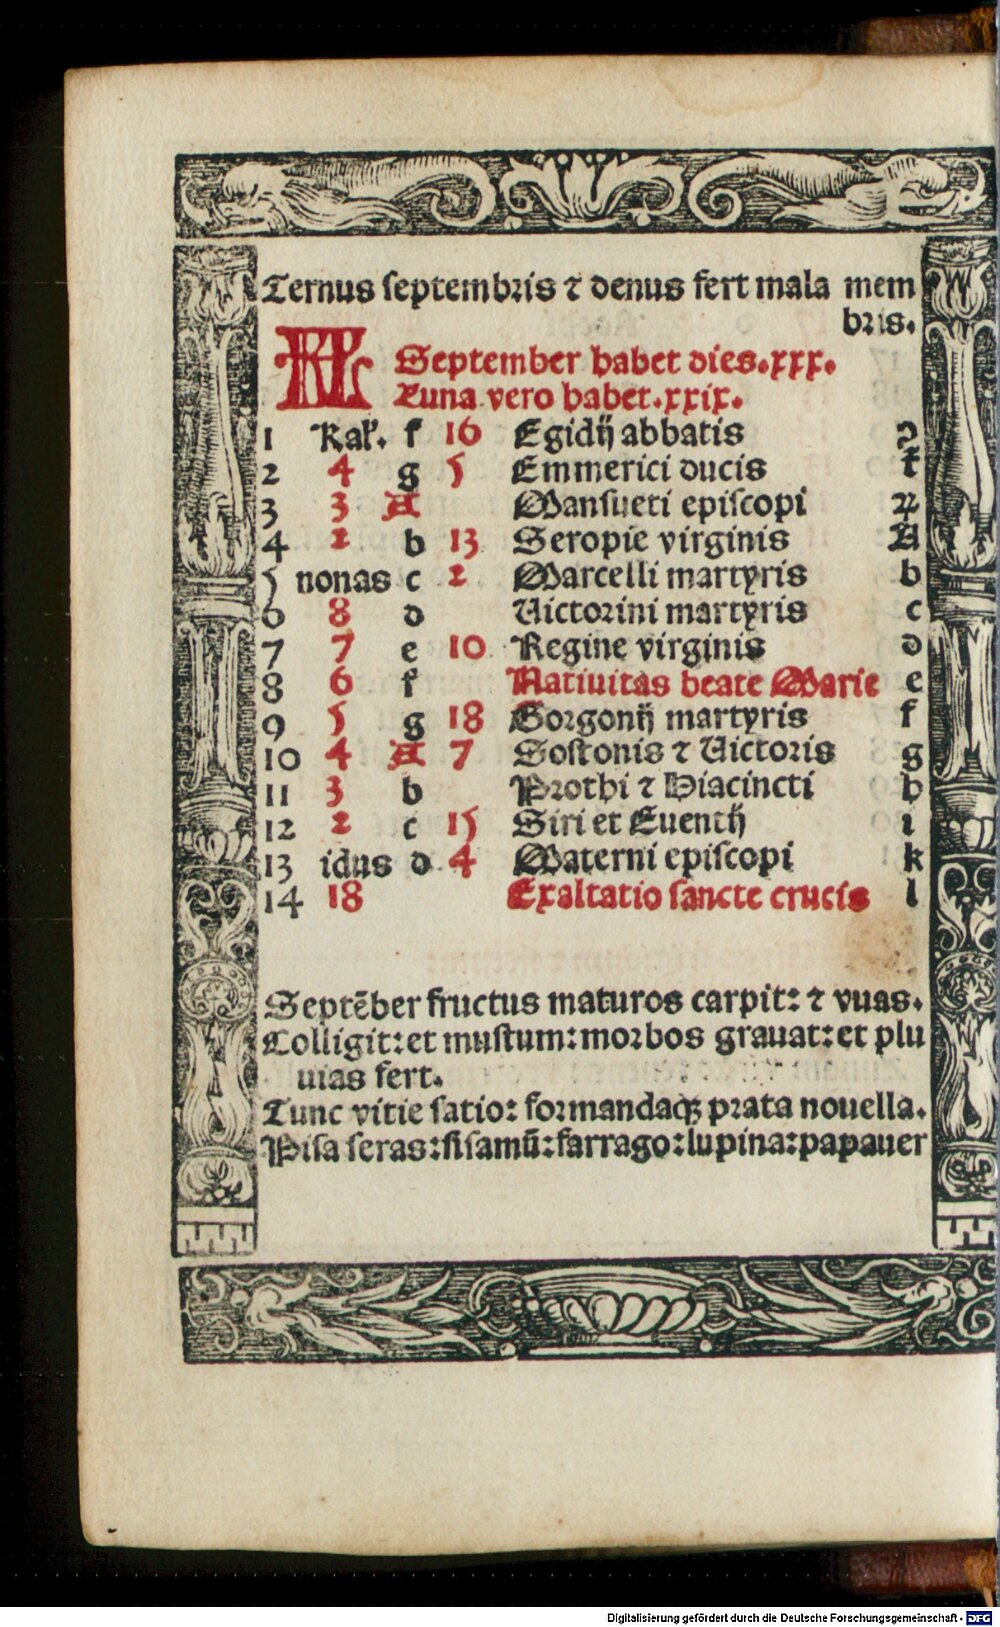 Ternus septembris ⁊ denus fert mala mem
bris.
KL September habet dies.xxx.
Luna vero habet.xxix.
1 Kal̕. f 16 Egidij abbatis ꝛ
2 4 g 5 Emmerici ducis t
3 3 A Mansueti episcopi ꝝ
4 2 b 13 Seropie virginis A
5 nonas c 2 Marcelli martyris b
6 8 d Victorini martyris c
7 7 e 10 Regine virginis d
8 6 f Natiuitas beate Marie e
9 5 g 18 Gorgonij martyris f
10 4 A 7 Sostonis ⁊ Victoris g
11 3 b Prothi ⁊ Hiacincti h
12 2 c 15 Siri et Euentij i
13 idus d 4 Materni episcopi k
14 18 Exaltatio sancte crucis l
Septẽber fructus maturos carpit: ⁊ vuas.
Colligit: et mustum: morbos grauat: et plu
uias fert.
Tunc vitie satio: formandaqꝫ prata nouella.
Pisa seras: sisamũ: farrago: lupina: papauer
Digitalisierung gefördert durch die Deutsche Forschungsgemeinschaft - DFG